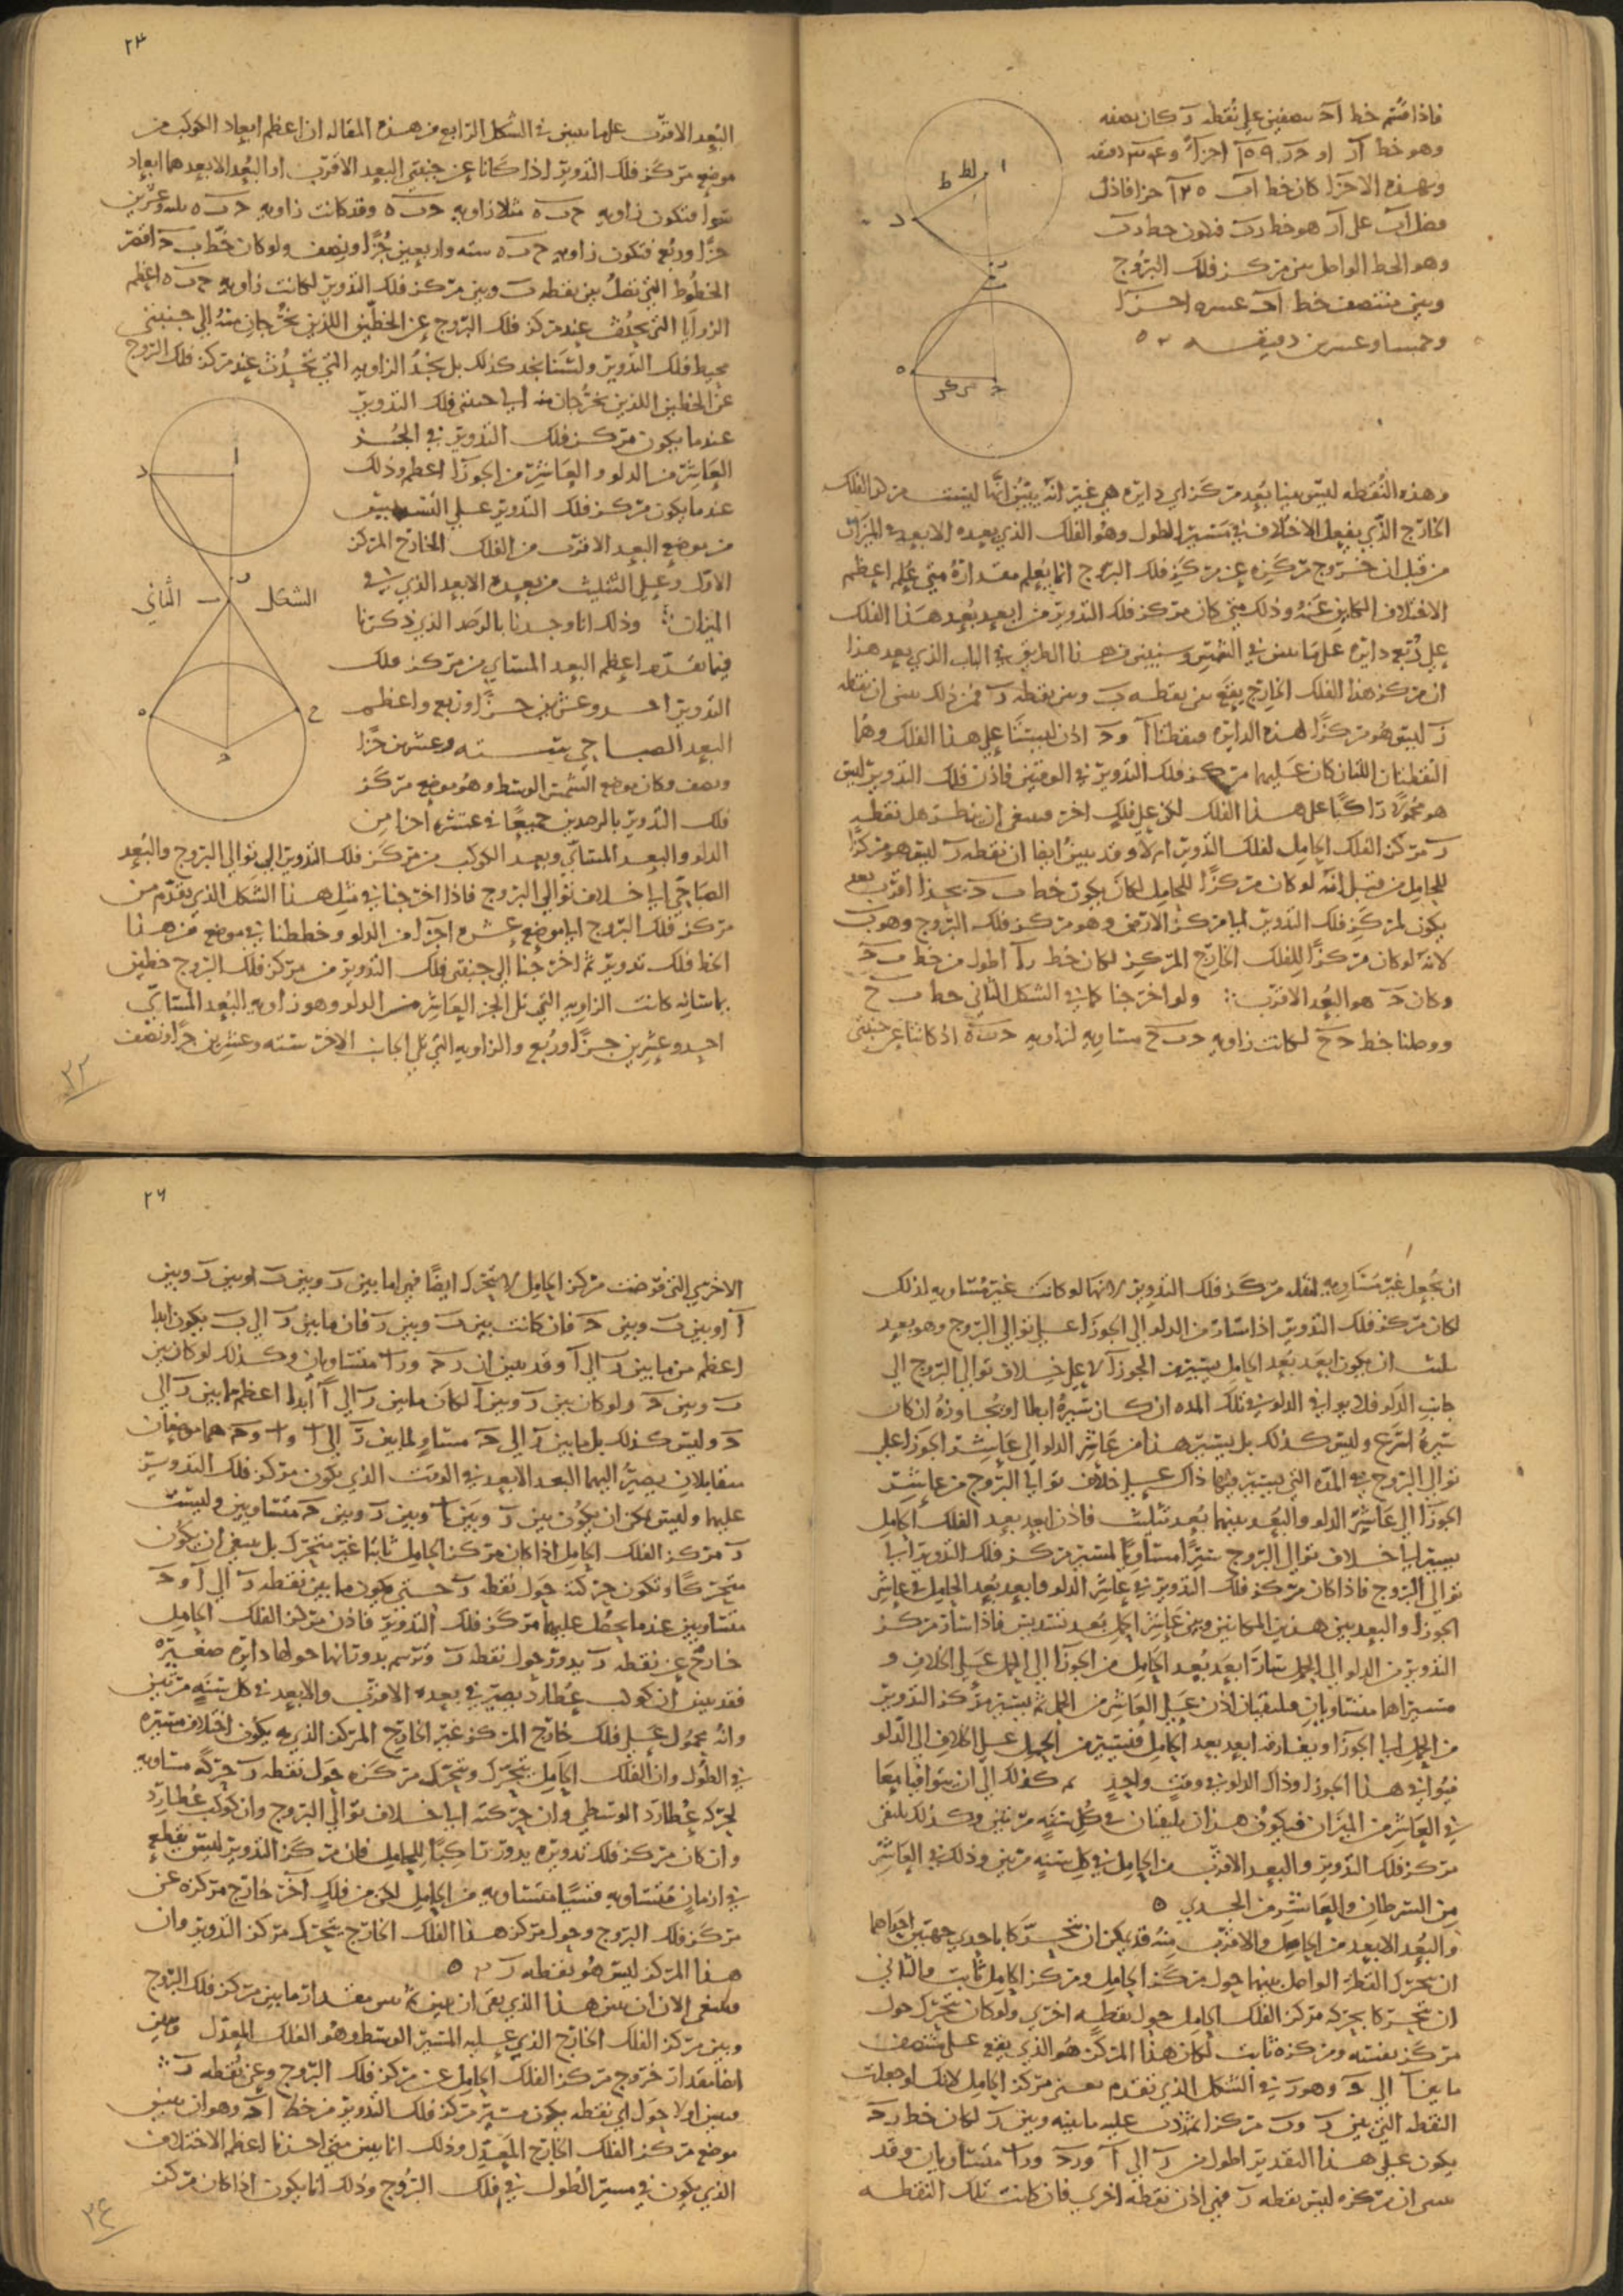 فاذا قسم خط اح بنصفين على نقطه ر كان نصفه
وهو خط آر او حر
وبهذه الاجزا كان خط اب جزا فاذن
فضل آب على آر هو خط رب فيكون خط رب
وهو الخط الواصل بين مركز فلك البروج
وبين منتصف خط اح عشره اجزا
وخمسا وعشرين دقيقه
وهذه النقطه ليس بينا بعد مركز اي دايره هي غير انه يتبين انها ليست مركز الفلك
الخارج الذي يفعل الاختلاف في مسير الطول وهو الفلك الذي بعده الابعد في الميزان
من قبل ان خروج مركزه عن مركز فلك البروج انما يعلم مقداره متى علم اعظم
الاختلاف الكاين عنه وذلك متى كان مركز فلك التدوير من ابعد بعد هذا الفلك
على ربع دايره على ما تبين في الشمس وسنبين من هذا الطريق في الباب الذي بعد هذا
ان مركز هذا الفلك الخارج يقع بين نقطه ب وبين نقطه ر فمن ذلك تبين ان نقطه
ر ليس هو مركزا لهذه الدايره فنقطتا آ و ح اذن ليستا على هذا الفلك وهما
النقطتان اللتان كان عليهما مركز فلك التدوير في الوقتين فاذن فلك التدوير ليس
هو محمولا راكبا على هذا الفلك لكن على فلك اخر فينبغي ان ننظر هل نقطه
ر مركز الفلك الحامل لفلك التدوير ام لا وقد يبين ايضا ان نقطه ر ليس هو مركزا
للحامل من قبل انه لو كان مركزا للحامل لكان يكون خط ب ح يحد اقرب بعد
يكون لمركز فلك التدوير الى مركز الارض وهو مركز فلك البروج وهو ب
لانه لو كان مركزا للفلك الخارج المركز لكان خط را اطول من خط ب ح
وكان ح هو البعد الاقرب ولو اخرجنا كما في الشكل الثاني خط ب ح
ووصلنا خط ح ح لكانت زاويه ح ب ح مساويه لزاويه ح ب ه اذ كانتا عن جنبتي
٢٣
البعد الاقرب على ما تبين في الشكل الرابع من هذه المقاله ان اعظم ابعاد الكوكب من
موضع مركز فلك التدوير اذا كانا عن جنبتي البعد الاقرب او البعد الابعد هما ابعاد
سوا فتكون زاويه ح ب ه مثلا زاويه ح ب ه وقد كانت زاويه ح ب ه ثلثه وعشرين
جزا وربع فتكون زاويه ح ب ه سته واربعين جزا ونصف ولو كان خط ب ح اقصر
الخطوط التي تصل بين نقطه ب وبين مركز فلك التدوير لكانت زاويه ح ب ه اعظم
الزوايا التي تحدث عند مركز فلك البروج عن الخطين اللذين يخرجان منه الي جنبتي
محيط فلك التدوير ولسنا نجد كذلك بل نجد الزاويه التي تحدث عند مركز فلك البروج
عن الخطين اللذين يخرجان منه الى جنبتي فلك التدوير
عندما يكون مركز فلك التدوير في الجز
العاشر من الدلو والعاشر من الجوزا اعظم وذلك
عندما يكون مركز فلك التدوير على التسديس
من موضع البعد الاقرب من الفلك الخارج المركز
الاول وعلى التثليث من بعده الابعد الذي في
الميزان وذلك انا وجدنا بالرصد الذي ذكرنا
فيما تقدم اعظم البعد المسائي من مركز فلك
التدوير احد وعشرين جزا وربع واعظم
البعد الصباحي سته وعشرين جزا
ونصف وكان موضع الشمس الوسط وهو موضع مركز
فلك التدوير بالرصدين جميعا في عشره اجزا من
الشكل الثاني
الدلو والبعد المسائي وبعد الكوكب من مركز فلك التدوير الى توالي البروج والبعد
الصباحي الى خلاف توالي البروج فاذا اخرجنا في مثل هذا الشكل الذي تقدم من
مركز فلك البروج الى موضع عشره اجزا من الدلو وخططنا في موضع من هذا
الخط فلك تدوير ثم اخرجنا الى جنبتي فلك التدوير من مركز فلك البروج خطين
يماسانه كانت الزاويه التي تلي الجز العاشر من الدلو وهو زاويه البعد المسائي
احد وعشرين جزا وربع والزاويه التي تلي الجانب الاخر سته وعشرين جزا ونصف
٢٣
ان نجعل غير متساويه لنقله مركز فلك التدوير لانها لو كانت غير متساويه لذلك
لكان مركز فلك التدوير اذا سار من الدلو الى الجوزا على توالي البروج وهو بعد
ثلث ان يكون ابعد بعد الحامل يسير من الجوزا لا على خلاف توالي البروج الى
جانب الدلو فلا يوافي الدلو في تلك المده ان كان سيره ابطا او يجاوزه ان كان
سيره اسرع وليس كذلك بل يسير هذا من عاشر الدلو الى عاشر الجوزا على
توالي البروج في المده التي يسير فيها ذاك على خلاف توالي البروج من عاشر
الجوزا الى عاشر الدلو والبعد بينهما بعد تثليث فاذن ابعد بعد الفلك الحامل
يسير الى خلاف توالي البروج سيرا مساويا لمسير مركز فلك التدوير الى
توالي البروج فاذا كان مركز فلك التدوير في عاشر الدلو فابعد بعد الحامل في عاشر
الجوزا والبعد بين هذين المكانين وبين عاشر الحمل بعد تسديس فاذا سار مركز
التدوير من الدلو الى الحمل سار ابعد بعد الحامل من الجوزا الى الحمل على الخلاف و
مسيراهما متساويان فيلتقيان اذن على العاشر من الحمل ثم يسير مركز التدوير
من الحمل الى الجوزا ويفارقه ابعد بعد الحامل فيسير من الحمل على الخلاف الى الدلو
فيوافي هذا الجوزا وذاك الدلو في وقت واحد ثم كذلك الى ان يتوافيا معا
في العاشر من الميزان فيكون هذان يلتقيان في كل سنه مرتين وكذلك يلتقي
مركز فلك التدوير والبعد الاقرب من الحامل في كل سنه مرتين وذلك في العاشر
من السرطان والعاشر من الجدي ه
والبعد الابعد من الحامل والاقرب منه قد يمكن ان يتحركا باحدى جهتين احداهما
ان يتحرك القطر الواصل بينهما حول مركز الحامل ومركز الحامل ثابت والثاني
ان يتحركا بحركه مركز الفلك الحامل حول نقطه اخرى ولو كان يتحرك حول
مركز نفسه ومركزه ثابت لكان هذا المركز هو الذي يقع على منتصف
ما بين آ الى ح وهو ر في الشكل الذي تقدم معنى مركز الحامل لانك لو جعلت
النقطه التي بين ر و ب مركزا عليه ما بينه وبين ر لكان خط ر ح
يكون على هذا التقدير اطول من ر الى آ و رح و را متساويان وقد
تبين ان مركزه ليس نقطه ر فهي اذن نقطه اخرى فان كانت تلك النقطه
٢٤
الاخرى التي فرضت مركز الحامل لا تتحرك ايضا فهي اما بين ر وبين ب او بين ر وبين
آ او بين ب وبين ح فان كانت بين ب وبين ر فان ما بين ر الى ب يكون ابدا
اعظم من ما بين ر الى آ وقد تبين ان رح و را متساويان وكذلك لو كان بين
ب وبين ح ولو كان بين ر وبين آ لكان ما بين ر الى آ ابدا اعظم مما بين ر الى
ح وليس كذلك بل ما بين ر الى ح مساو لما بين ر الى آ و آ و ح هما موضعان
متقابلان يصير اليهما البعد الابعد في الوقت الذي يكون مركز فلك التدوير
عليهما وليس يمكن ان يكون بين ر وبين آ وبين ر وبين ح متساويين وليست
ر مركز الفلك الحامل اذا كان مركز الحامل ثابتا غير متحرك بل ينبغي ان يكون
متحركا وتكون حركته حول نقطه ر حتى يكون ما بين نقطه ر الى آ و ح
متساويين عندما يحط عليهما مركز فلك التدوير فاذن مركز الفلك الحامل
خارج عن نقطه ر يدور حول نقطه ر وترسم بدورانها حولها دايره صغيره
فقد تبين ان كوكب عطارد يصير في بعده الاقرب والابعد في كل سنه مرتين
وانه محمول على فلك خارج المركز غير الخارج المركز الذي به يكون اختلاف مسيره
في الطول وان الفلك الحامل يتحرك ويتحرك مركزه حول نقطه ر حركه مساويه
لحركه عطارد الوسطى وان حركته الى خلاف توالي البروج وان كوكب عطارد
وان كان مركز فلك تدويره يدور راكبا للحامل فان مركز التدوير ليس يقطع
في ازمان متساويه قسيا متساويه من الحامل لكن من فلك آخر خارج مركزه عن
مركز فلك البروج وحول مركز هذا الفلك الخارج يتحرك مركز التدوير وان
هذا المركز ليس هو نقطه ر ه
وينبغي الان ان نبين هذا الذي بقى ان نبين ثم نبين مقدار ما بين مركز فلك البروج
وبين مركز الفلك الخارج الذي عليه المسير الوسط وهو الفلك المعدل ونبين
ايضا مقدار خروج مركز الفلك الحامل عن مركز فلك البروج وعن نقطه ر
فنبين اولا حول اي نقطه يكون مسير مركز فلك التدوير من خط اح وهو ان نبين
موضع مركز الفلك الخارج المعدل وذلك انما يبين متى اخذنا اعظم الاختلاف
الذي يكون في مسير الطول في فلك البروج وذلك انما يكون اذا كان مركز
٢٤